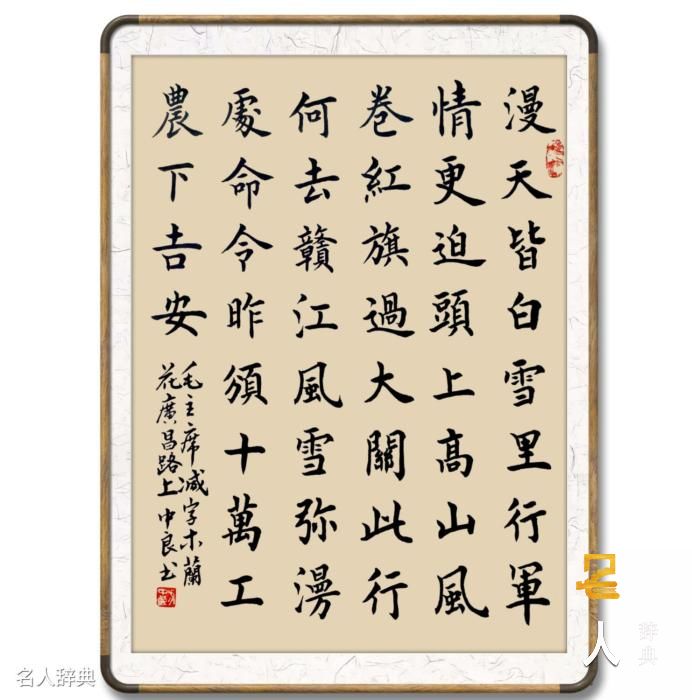 漫天皆白雪里行軍
情更迫頭上高山風
卷紅旗過大關此行
何去贛江風雪弥漫
處命令昨頒十萬工
農下吉安
毛主席减字木蘭
花廣昌路上中良书
名人辞典
名人辞典